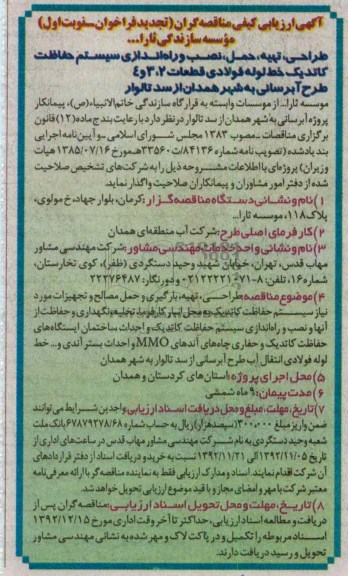 آگهی ارزیابی کیفی مناقصه‌گران (تجدید فراخوان_نوبت اول)
مؤسسه سازندگی تارا...
طراحی، تهیه، حمل، نصب و راه‌اندازی سیستم حفاظت
کاتدیک خط لوله فولادی قطعات ۲، ۳ و ٤
طرح آبرسانی به شهر همدان از سد تالوار
موسسه تارا... از موسسات وابسته به قرارگاه سازندگی خاتم‌الانبیاء(ص)، پیمانکار
پروژه آبرسانی به شهر همدان از سد تالوار در نظر دارد با رعایت بند ج ماده (۱۲) قانون
برگزاری مناقصات _ مصوب ۱۳۸۳ مجلس شورای اسلامی _ و آئین‌نامه اجرایی
بند یادشده (تصویب نامه شماره ۸۴۱۳۶/ت ۳۳۵۶۰هـ مورخ ۱۳۸۵/۰۷/۱۶ هیات
وزیران) پروژه‌ای با اطلاعات مشــروحه ذیل را به شرکت‌های تشخیص صلاحیت
شده از دفتر امور مشاوران و پیمانکاران صلاحیت واگذار نماید.
۱) نام و نشانی دستگاه مناقصه گزار: کرمان، بلوار جهاد، خ مولوی،
پلاک ۱۱۸، موسسه تارا...
۲) کارفرمای اصلی طرح: شرکت آب منطقه‌ای همدان
۳) نام و نشانی واحد خدمات مهندسی مشاور: شرکت مهندسی مشاور
مهاب قدس، تهران، خیابان شهید وحید دستگردی (ظفر)، کوی تخارستان،
شماره ۱۶، تلفن: ۸-۰۲۱۲۲۲۲۱۰۷۱ و دورنگار: ۲۲۳۷۶۴۸۷
۴) موضوع مناقصه: طراحــی، تهیه، بارگیری و حمل مصالح و تجهیزات مورد
نیاز سیســتم حفاظت کاتدیک به محل انبار کارفرما، تخلیه، نگهداری و حفاظت از
آنها و نصب و راه‌اندازی سیستم حفاظت کاتدیک و احداث ساختمان ایستگاه‌های
حفاظت کاتدیک و حفاری چاه‌های آندهای MMO و احداث بستر آندی و... خط
لوله فولادی انتقال آب طرح آبرسانی از سد تالوار به شهر همدان
۵) محل اجرای پروژه: استان‌های کردستان و همدان
۶) مدت پیمان: ۹ ماه شمسی
۷) تاریخ، مهلت، مبلغ و محل دریافت اسناد ارزیابی: واجدین شــرایط می‌توانند
ضمن واریز مبلغ ۳۰۰،۰۰۰ (سیصدهزار) ریال به حساب شماره ۶۷۸۷۹۲۷۸/۶۸ بانک ملت
شعبه وحید دستگردی به نام شــرکت مهندسی مشاور مهاب قدس در ساعت‌های اداری از
تاریخ ۱۳۹۲/۱۱/۰۵ الی ۱۳۹۲/۱۱/۲۱ نسبت به خرید و دریافت اسناد از دفتر قراردادهای
آن شرکت اقدام نمایند. اسناد و مدارک ارزیابی فقط به نماینده مناقصه‌گر با ارائه معرفی‌نامه
معتبر شرکت با مهر و امضای مجاز و با قید موضوع ارزیابی تحویل خواهد شد.
۸) تاریخ، مهلت و محل تحویل اسناد ارزیابی: مناقصه‌گران پس از
دریافت و مطالعه اسناد ارزیابی، حداکثر تا آخر وقت اداری مورخ ۱۳۹۲/۱۲/۱۵
اسناد مربوطه را تکمیل و در پاکت لاک و مهر شده به نشانی مهندسی مشاور
تحویل و رسید دریافت دارند.